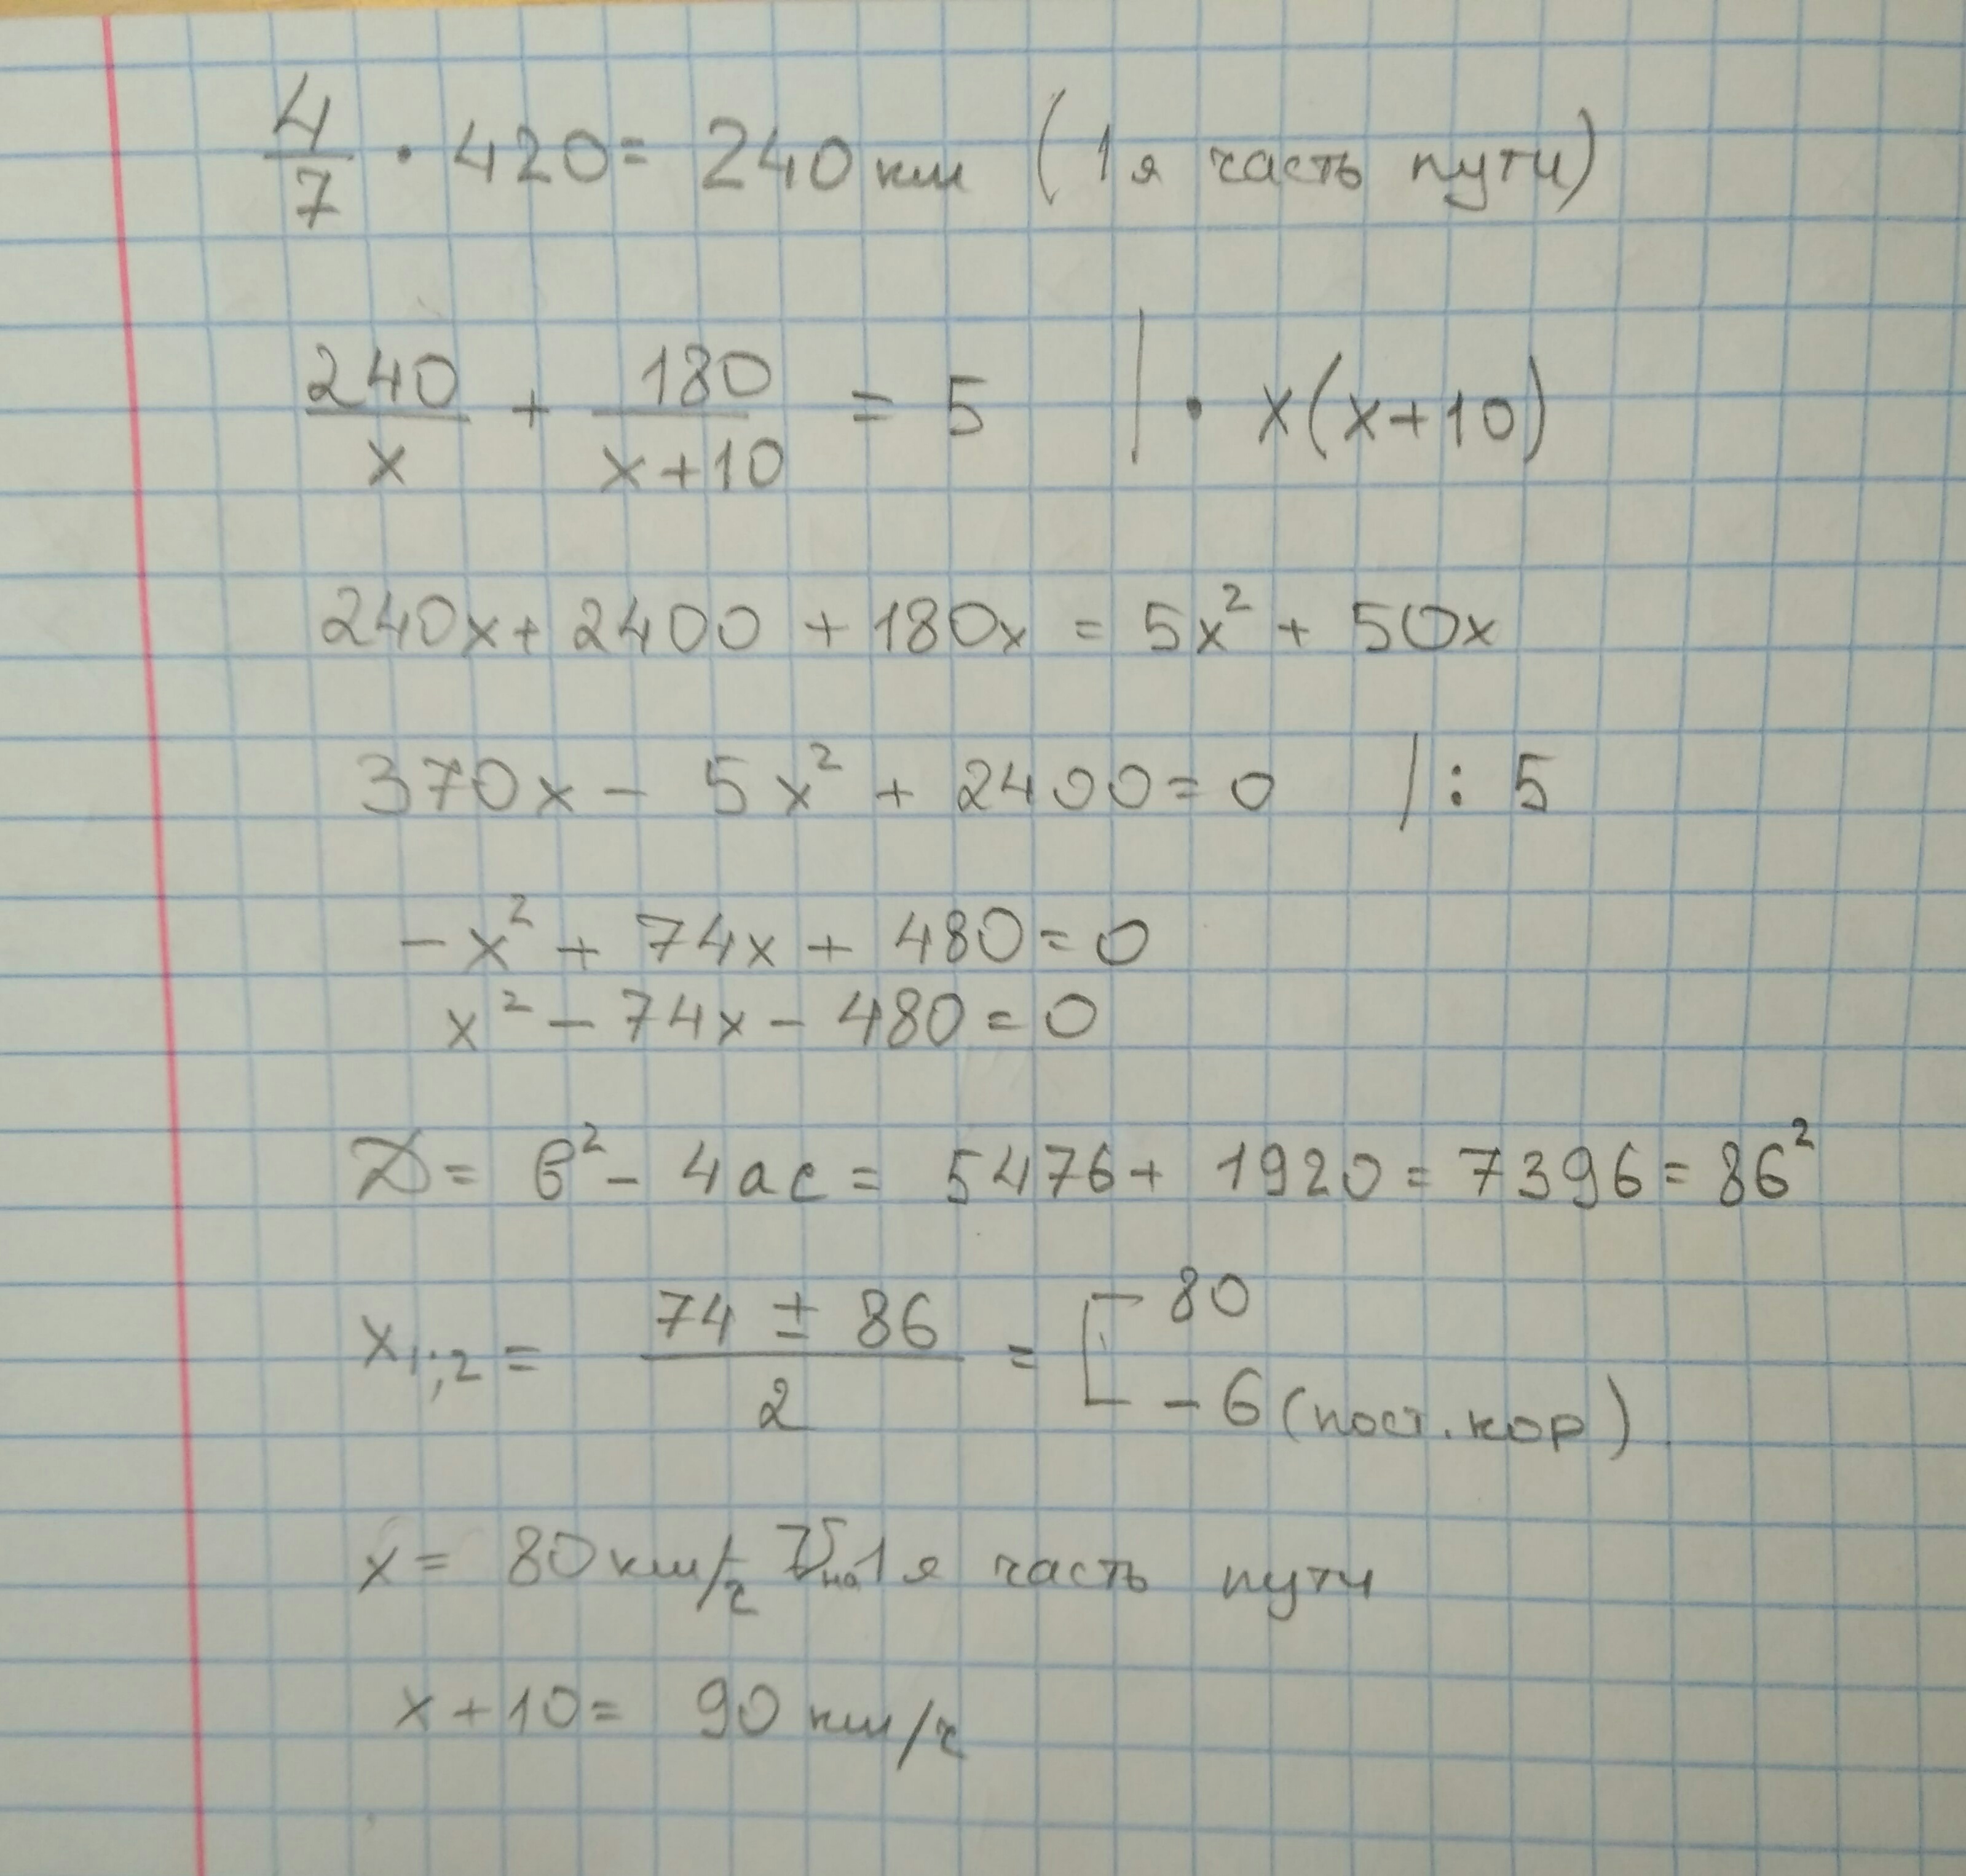 4/7 · 420 = 240 км (1я часть пути)
240/x + 180/(x+10) = 5 | · x(x+10)
240x + 2400 + 180x = 5x² + 50x
370x - 5x² + 2400 = 0 /: 5
-x² + 74x + 480 = 0
x² - 74x - 480 = 0
D = b² - 4ac = 5476 + 1920 = 7396 = 86²
x₁;₂ = (74 ± 86)/2 = [ 80
-6 (пост. кор)
x = 80 км/ч V на 1я часть пути
x + 10 = 90 км/ч